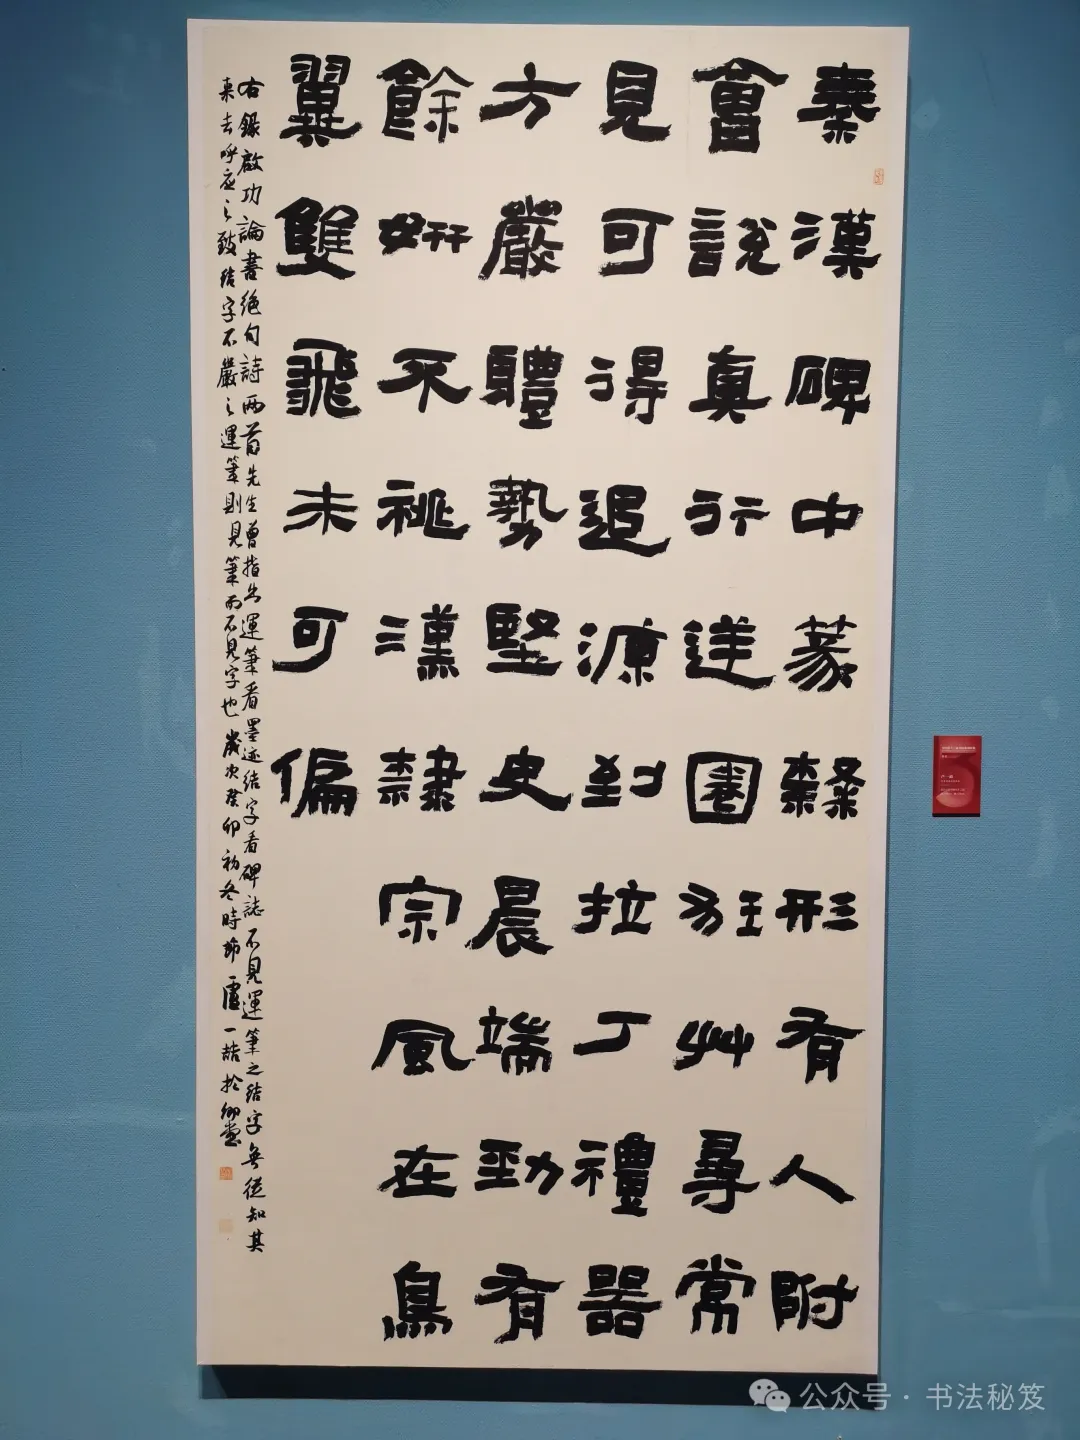 秦漢碑中篆隸形有人附
會說真行逆圈狂艸尋常
見可得追源到拉丁禮器
方嚴體勢堅史晨端勁有
餘妍不祧漢隸宗風在鳥
翼雙飛未可偏
右錄啟功論書絕句詩两首先生曾指出運筆看墨迹結字看碑誌不見運筆之結字無從知其
来去呼应之致結字不嚴之運筆則見筆而不見字也歲次癸卯初冬時節盧一喆於
公众号·书法秘笈